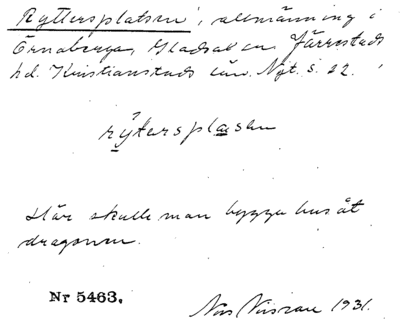 Ryttersplatsen, allmänning i
Örnaberga, Gladsax sn, Järrestads
hd. Kristianstads län. Nyt. s. 22.
rytersplasen
Här skulle man bygga hus åt
dragonen.
Nr 5463. Nils 1931.